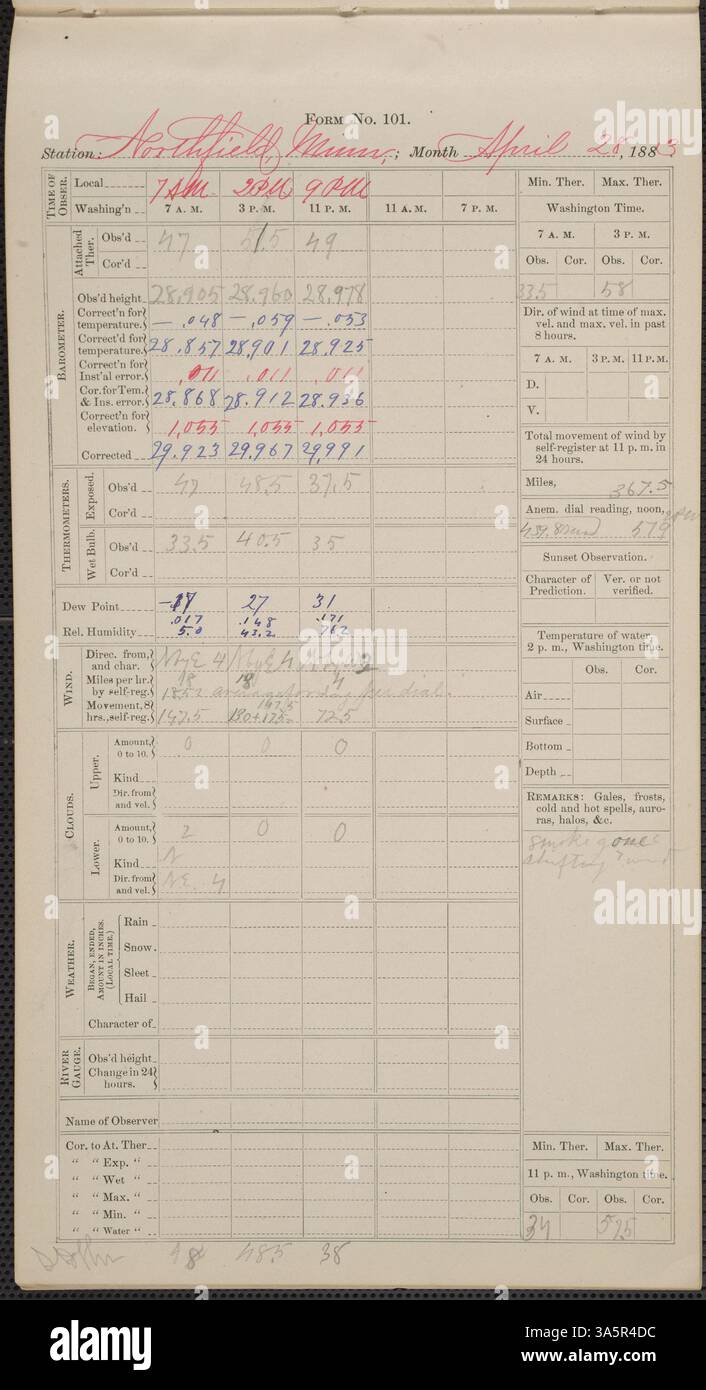 Form No. 101.
Station: Northfield, Minn.; Month April 28, 1883
Time of Obser.
Local 7 AM 2 PM 9 PM
Washing'n 7 A. M. 3 P. M. 11 P. M. 11 A. M. 7 P. M.
Attached Ther.
Obs'd 47 49
Cor'd
Barometer.
Obs'd height 28.905 28.960 28.978
Correct'n for temperature. —.048 —.059 —.053
Correct'd for temperature. 28.857 28.901 28.925
Correct'n for Inst'al error. .011 .011 .011
Cor. for Tem. & Ins. error. 28.868 28.912 28.936
Correct'n for elevation. 1,055 1,055 1,055
Corrected 29.923 29.967 29,991
Thermometers.
Exposed.
Obs'd 48.5 37.5
Cor'd
Wet Bulb.
Obs'd 33.5 40.5 35
Cor'd
Dew Point 27 31
.017 .148 .171
Rel. Humidity 5.0 43.2 762
Wind.
Direc. from, and char. NyE 4 NyE 4
Miles per hr. by self-reg. 18 18 4
Movement, 8 hrs., self-reg. 147.5 72.5
Clouds.
Upper.
Amount, 0 to 10. 0 0 0
Kind
Dir. from and vel.
Lower.
Amount, 0 to 10. 2 0 0
Kind N
Dir. from and vel. NE 4
Weather.
Began, ended, amount in inches. (Local time.)
Rain
Snow.
Sleet
Hail
Character of
River Gauge.
Obs'd height
Change in 24 hours.
Name of Observer
Cor. to At. Ther
“ “ Exp. “
“ “ Wet “
“ “ Max. “
“ “ Min. “
“ “ Water “
48.5 38
Min. Ther. Max. Ther.
Washington Time.
7 A. M. 3 P. M.
Obs. Cor. Obs. Cor.
33.5 58
Dir. of wind at time of max. vel. and max. vel. in past 8 hours.
7 A. M. 3 P. M. 11 P. M.
D.
V.
Total movement of wind by self-register at 11 p. m. in 24 hours.
Miles, 367.5
Anem. dial reading, noon,
579
Sunset Observation.
Character of Prediction. Ver. or not verified.
Temperature of water, 2 p. m., Washington time.
Obs. Cor.
Air
Surface
Bottom
Depth
Remarks: Gales, frosts, cold and hot spells, auroras, halos, &c.
smoke gone
shifting wind
Min. Ther. Max. Ther.
11 p. m., Washington time.
Obs. Cor. Obs. Cor.
34 57.5
alamy
alamy
Image ID: 3A5R4DC
www.alamy.com